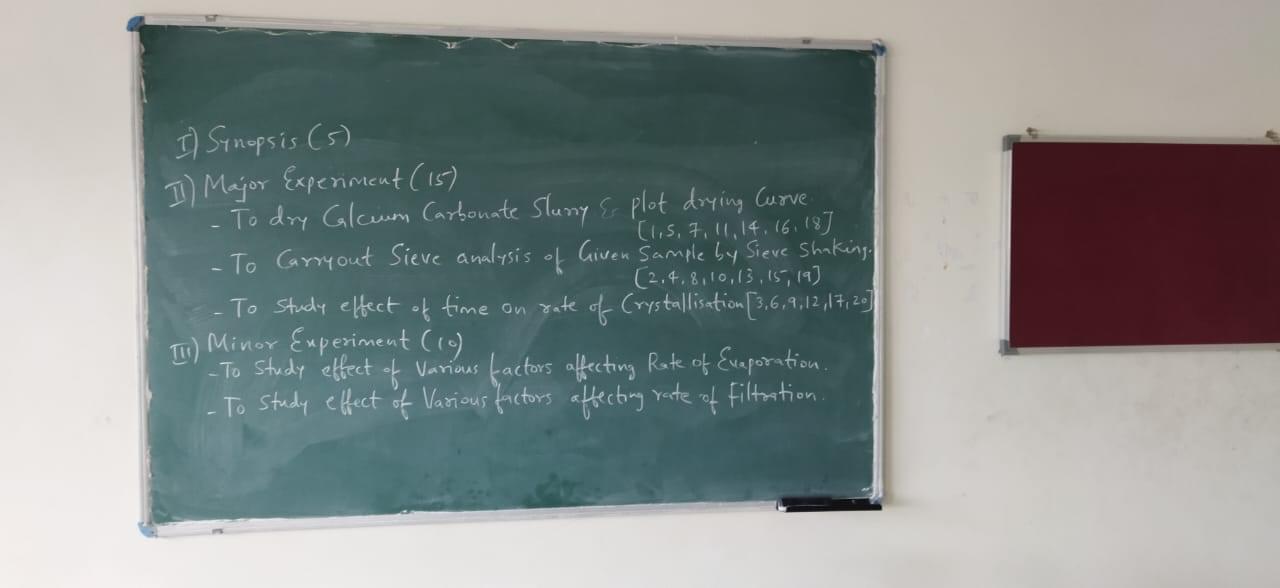 I) Synopsis (5)
II) Major Experiment (15)
- To dry Calcium Carbonate Slurry & plot drying Curve.
[1, 5, 7, 11, 14, 16, 18]
- To Carryout Sieve analysis of Given Sample by Sieve Shaking.
[2, 4, 8, 10, 13, 15, 19]
- To Study effect of time on rate of Crystallisation [3, 6, 9, 12, 17, 20]
III) Minor Experiment (10)
- To Study effect of Various factors affecting Rate of Evaporation.
- To Study effect of Various factors affecting rate of Filtration.